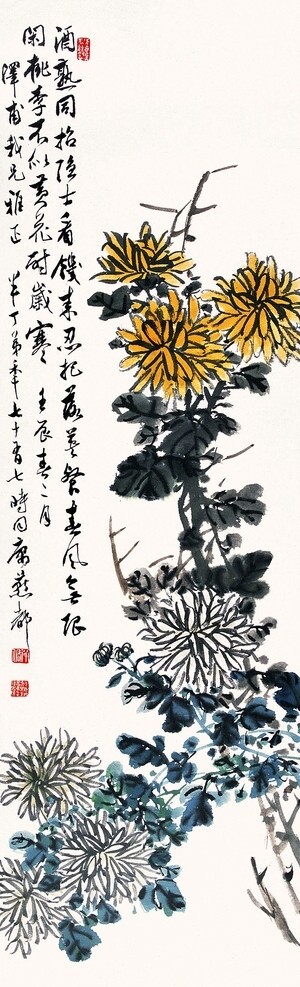 酒熟同招隐士看饑来忍把落英餐春风无限
闲桃李不似黄花耐岁寒 壬辰春二月
泽甫我兄雅正 半丁弟年七十有七时同寓燕都